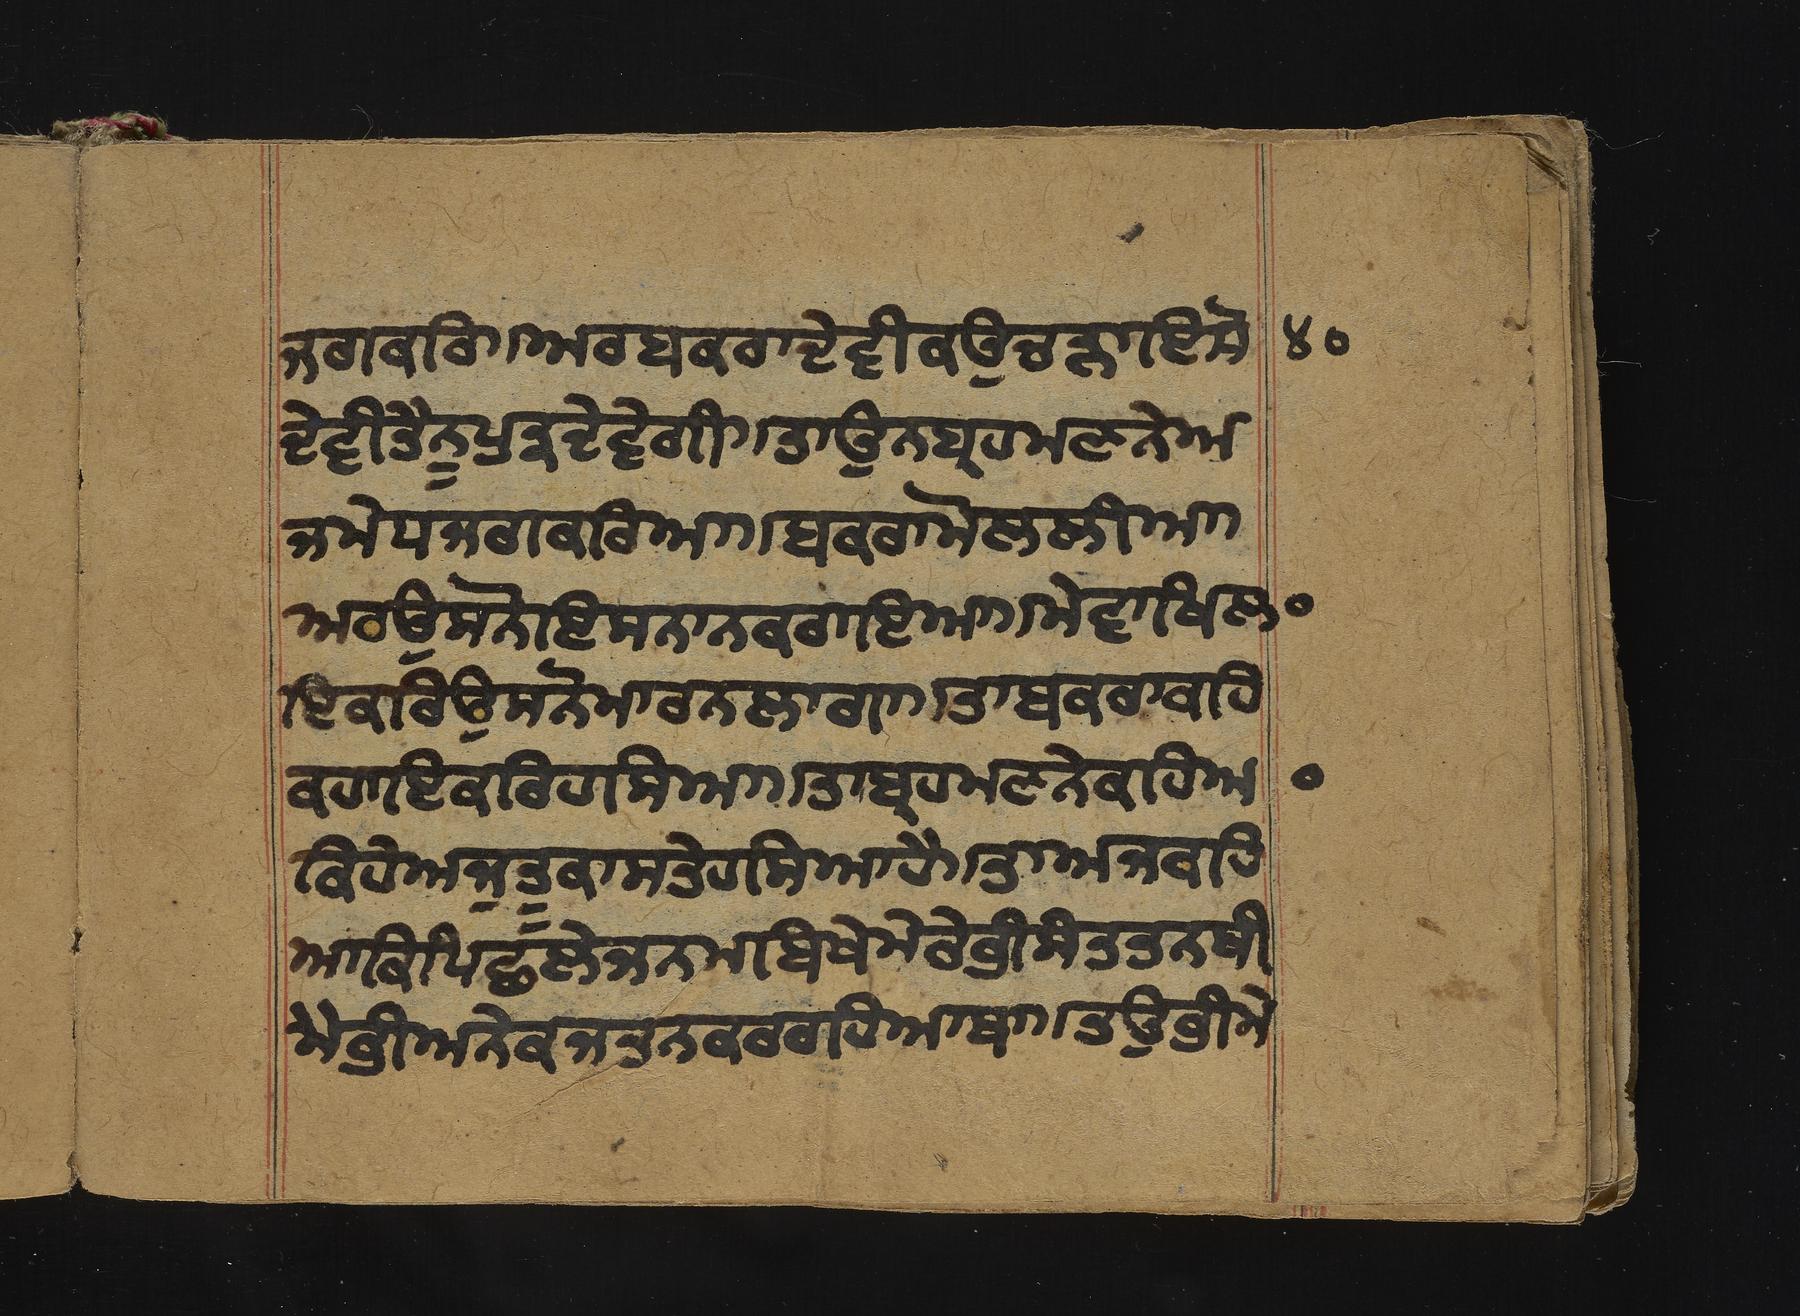 ਜਗਕਰਿ।ਅਰਬਕਰਾਦੇਵੀਕਉਚੜਾਇਸੋ ੪੦
ਦੇਵੀਤੈਨੂਪੁਤ੍ਰਦੇਵੇਗੀ।ਤਾਉਨਬ੍ਰਹਮਣਨੇਅ
ਜਮੇਧਜਗਕਰਿਆ।ਬਕਰਾਮੋਲਲੀਆ
ਅਰਉਸਨੋਇਸਨਾਨਕਰਾਇਆ।ਮੇਵਾਖਿਲਾ
ਇਕਰਿਉਸਨੋਮਾਰਨਲਾਗਾ।ਤਾਬਕਰਾਕਹਿ
ਕਹਾਇਕਰਿਹਸਿਆ।ਤਾਬ੍ਰਹਮਣਨੇਕਹਿਆ
ਕਿਹੇਅਜੁਤੂਕਾਸਤੇਹਸਿਆਹੈ।ਤਾਅਜਕਹਿ
ਆਕਿਪਿਛਲੇਜਨਮਬਿਖੇਮੇਰੇਭੀਸੰਤਤਨਥੀ
ਮੈਭੀਅਨੇਕਜਤਨਕਰਰਹਿਆਥਾ।ਤਉਭੀਮੇ